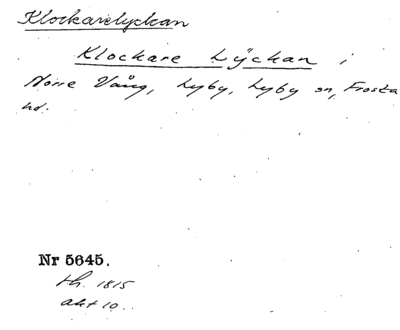 Klockarelyckan
Klockare Lÿckan i
Norre Vång, Lyby, Lyby sn, Frosta
hd.
Nr 5645.
th. 1815
akt 10.